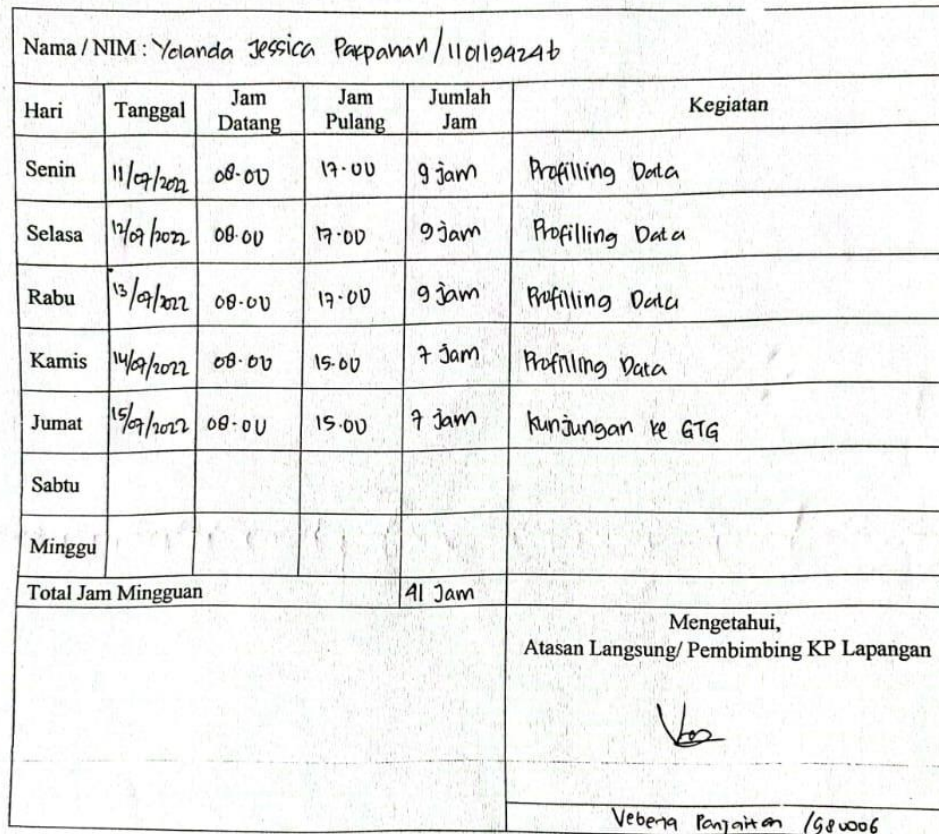 Nama / NIM : Yolanda Jessica Pakpahan / 1101194246
Hari Tanggal Jam Datang Jam Pulang Jumlah Jam Kegiatan
Senin 11/07/2022 08.00 17.00 9 jam Profilling Data
Selasa 12/07/2022 08.00 17.00 9 jam Profilling Data
Rabu 13/07/2022 08.00 17.00 9 jam Profilling Data
Kamis 14/07/2022 08.00 15.00 7 jam Profilling Data
Jumat 15/07/2022 08.00 15.00 7 jam kunjungan ke GTG
Sabtu
Minggu
Total Jam Mingguan 41 Jam
Mengetahui,
Atasan Langsung/ Pembimbing KP Lapangan
Vebena Panjaitan /980006